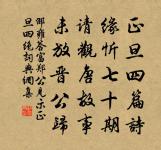 正旦四篇詩
緣忻七十期
請觀唐故事
未放晉公歸
邵雍答富鄭公見示正
旦四絕詞典網集